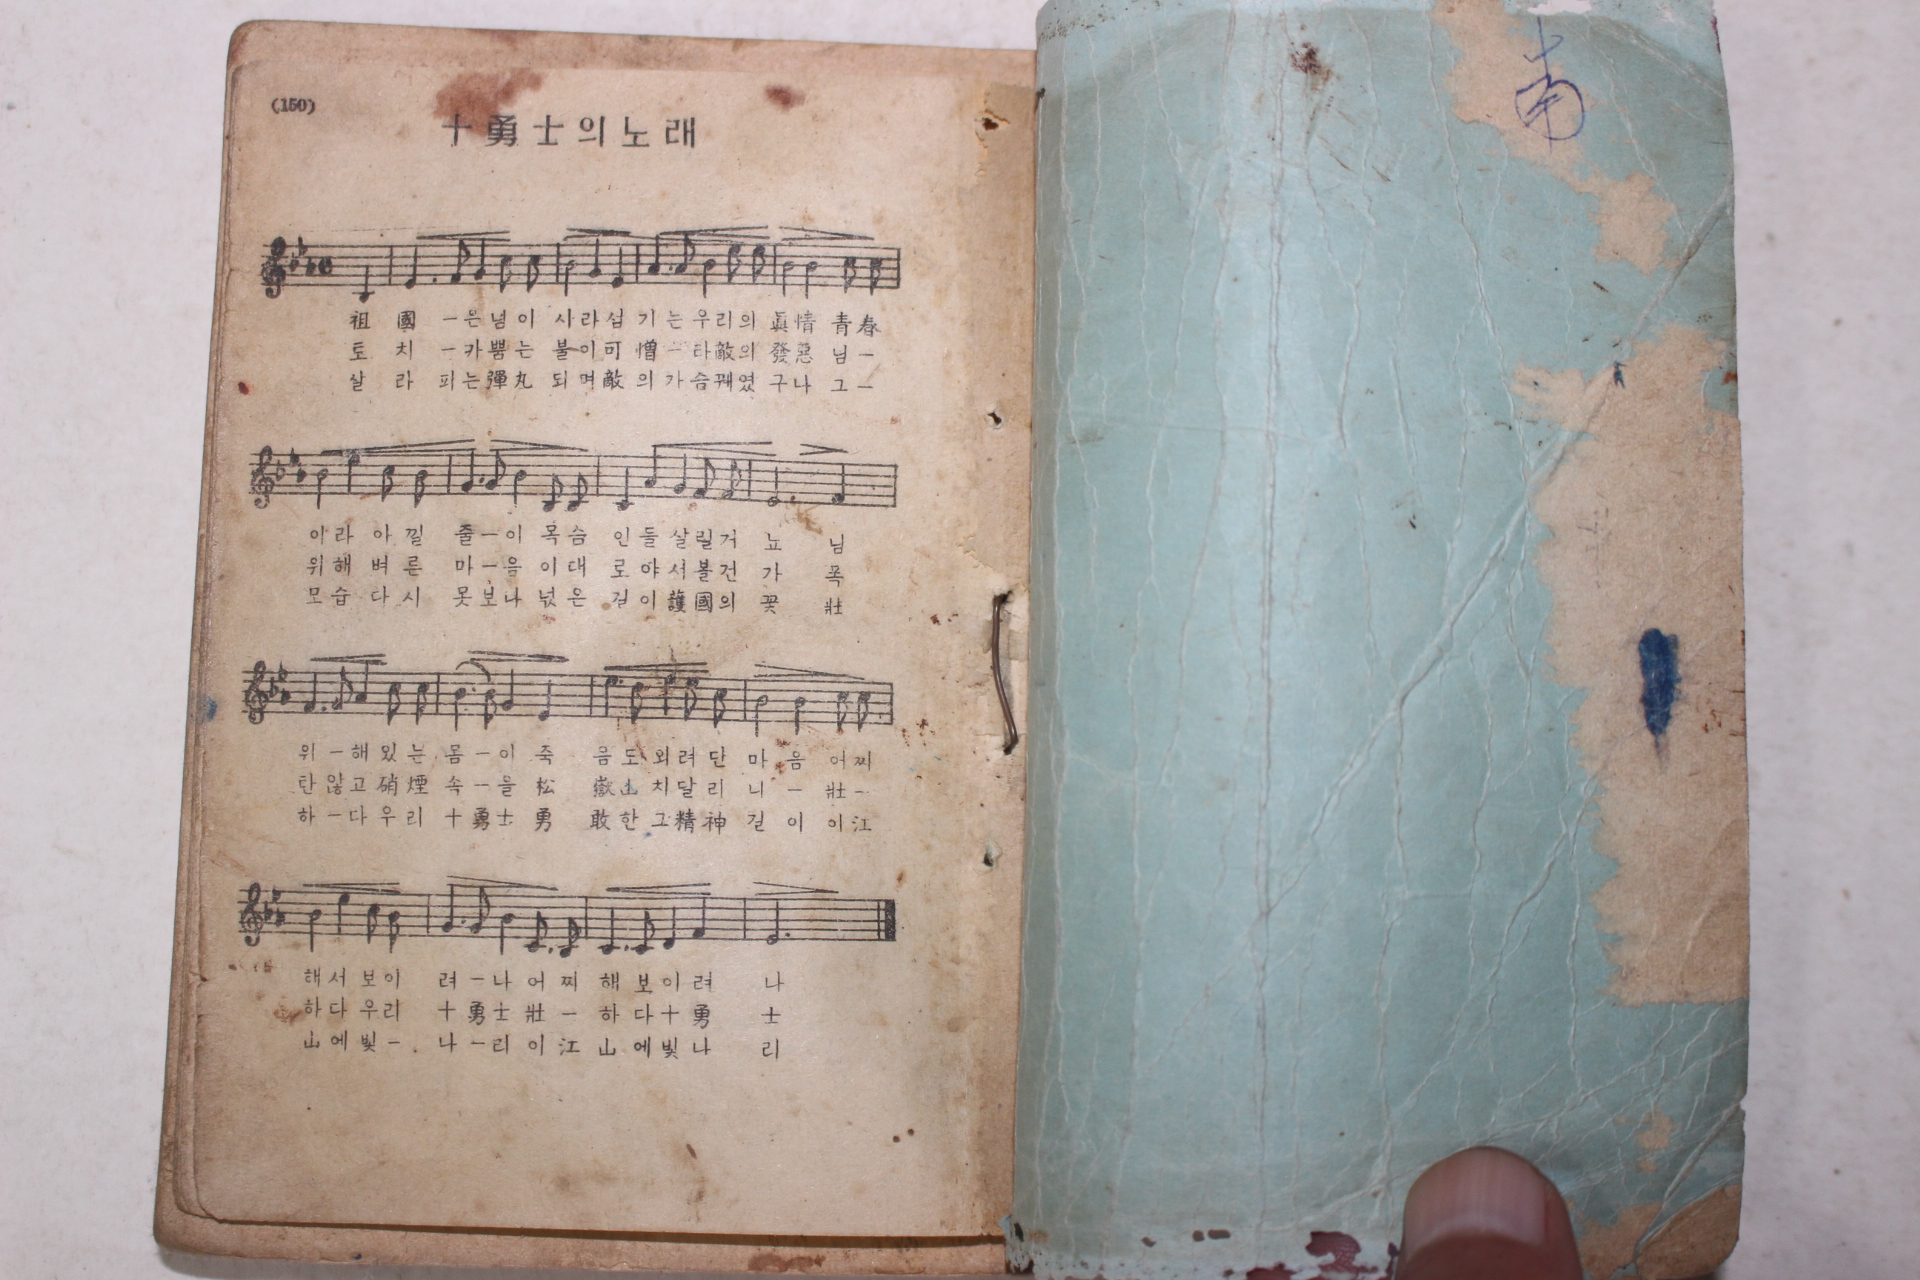 (150)
十勇士의노래
祖 國 -은넘이 사라섬 기는우리의 眞情 青春
토 치 -카뿜는 불이可 憎-타敵의 發惡 님-
살 라 피는彈丸 되며敵 의가슴꿰였 구나 그-
이라 아낄 줄-이 목숨 인들살릴거 뇨 님
위해 벼른 마-음 이대 로야서볼건 가 폭
모습 다시 못보나 넋은 길이護國의 꽃 壯
위-해있는 몸-이 죽 음도외려단 마 음 어찌
탄않고硝煙 속-을 松 嶽山치달리 니 - 壯-
하-다우리 十勇士 勇 敢한그精神 길 이 이江
해서 보이 려-나 어찌 해 보이려 나
하다 우리 十勇士 壯- 하 다十勇 士
山에 빛- 나-리 이江 山 에빛나 리